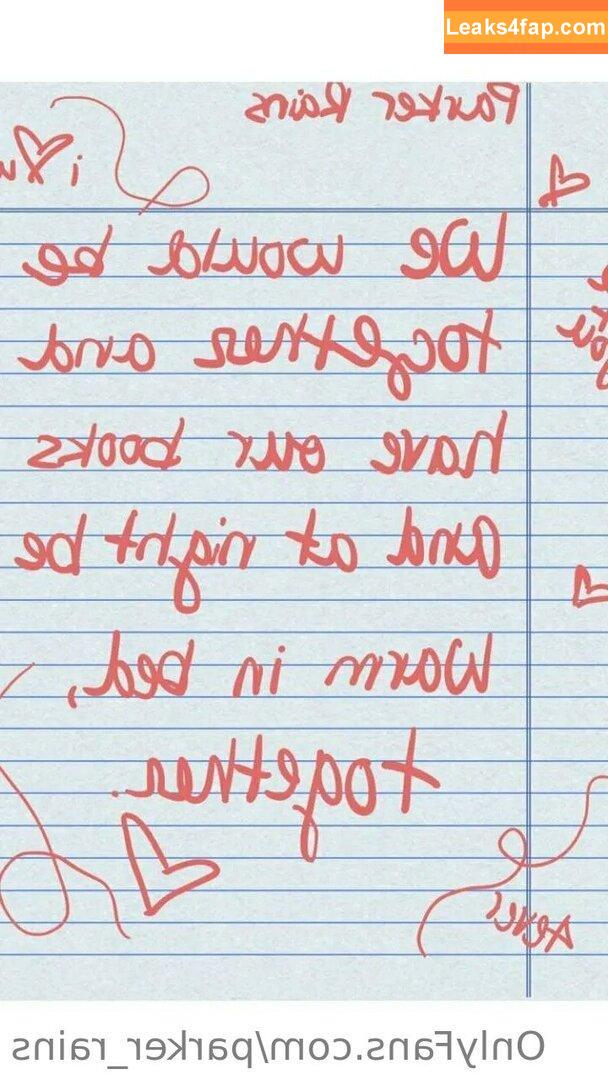 Leaks4fap.com
Parker Rains
We would be
together and
have our books
and at night be
warm in bed,
together.
OnlyFans.com/parker_rains